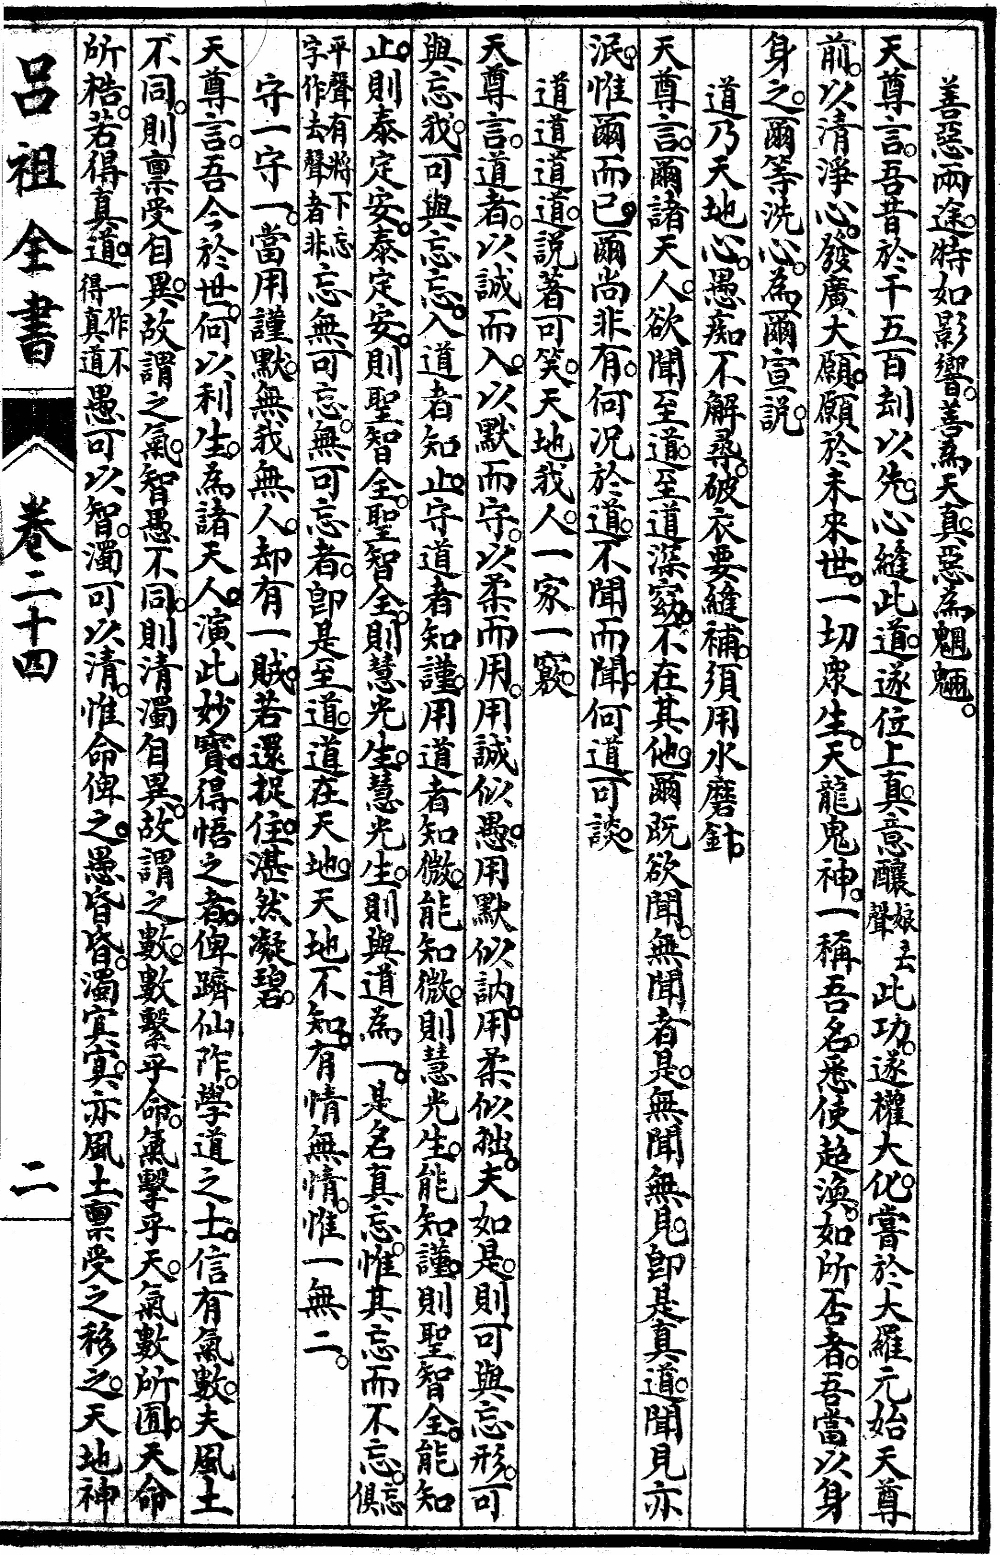 善惡兩途。特如影響。善為天真。惡為魍魎。
天尊言。吾昔於千五百刦以先。心縫此道。遂位上真。意釀娘去聲此功。遂權大化。嘗於大羅元始天尊
前。以清淨心。發廣大願。願於未來世。一切衆生。天龍鬼神。一稱吾名。悉使超渙。如所否者。吾當以身
身之。爾等洗心。為爾宣説。
道乃天地心。愚痴不解尋。破衣要縫補。須用水磨針。
天尊言。爾諸天人。欲聞至道。至道深窈。不在其他。爾既欲聞。無聞者是。無聞無見。卽是真道。聞見亦
泯。惟爾而已。爾尚非有。何況於道。不聞而聞。何道可談。
道道道道。説著可笑。天地我人。一家一竅。
天尊言。道者。以誠而入。以默而守。以柔而用。用誠似愚。用默似訥。用柔似拙。夫如是。則可與忘形。可
與忘我。可與忘忘。入道者知止。守道者知謹。用道者知微。能知微。則慧光生。能知謹。則聖智全。能知
止。則泰定安。泰定安。則聖智全。聖智全。則慧光生。慧光生。則與道為一。是名真忘。惟其忘而不忘。忘俱
平聲有將下忘字作去聲者非忘無可忘。無可忘者。卽是至道。道在天地。天地不知。有情無情。惟一無二。
守一守一。當用謹默。無我無人。却有一賊。若還捉住。湛然凝碧。
天尊言。吾今於世。何以利生。為諸天人。演此妙寶。得悟之者。俾躋仙阼。學道之士。信有氣數。夫風土
不同。則禀受自異。故謂之氣。智愚不同。則清濁自異。故謂之數。數繫乎命。氣擊乎天。氣數所囿。天命
所梏。若得真道。一作不得真道愚可以智。濁可以清。惟命俾之。愚昏昏。濁冥冥。亦風土禀受之移之。天地神
呂祖全書
卷二十四
二